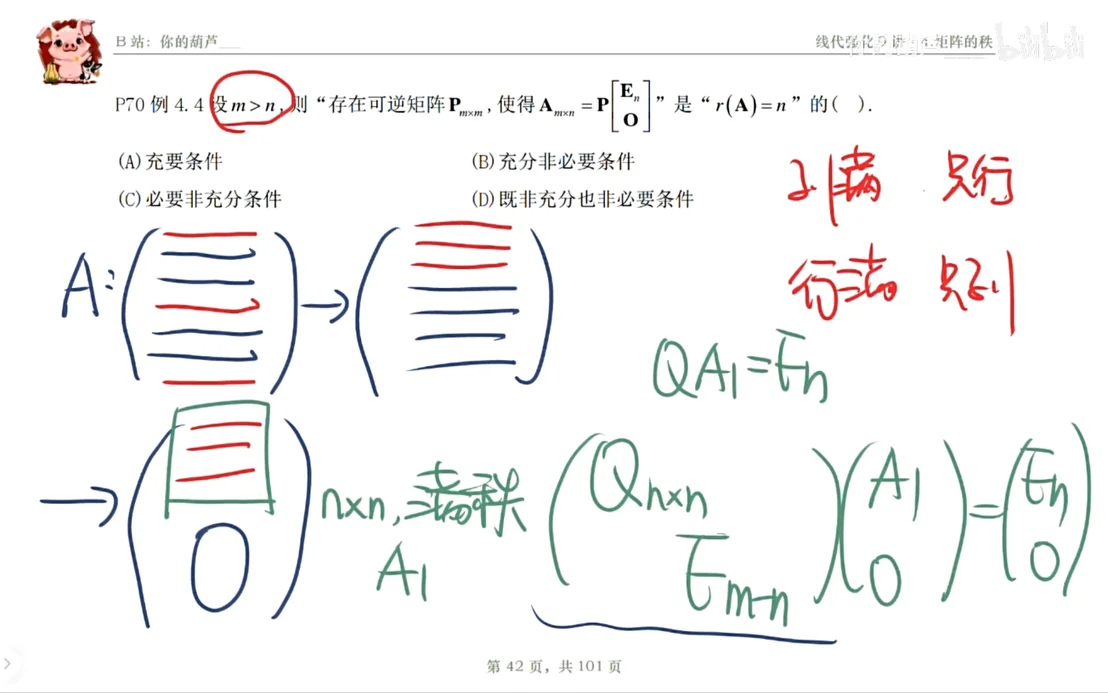 B 站: 你的葫芦___
线代强化 9 讲 矩阵的秩
bilibili
P70 例 4.4 设 m > n, 则 “存在可逆矩阵 P_{m×m}, 使得 A_{m×n} = P [E_n O] ” 是 “ r(A) = n ” 的 ( ).
(A) 充要条件 (B) 充分非必要条件
(C) 必要非充分条件 (D) 既非充分也非必要条件
列满 只行
行满 只列
A: →
QA₁ = Eₙ
→ O n×n, 满秩 A₁
(Q_{n×n} E_{m-n}) (A₁ O) = (Eₙ O)
第 42 页, 共 101 页